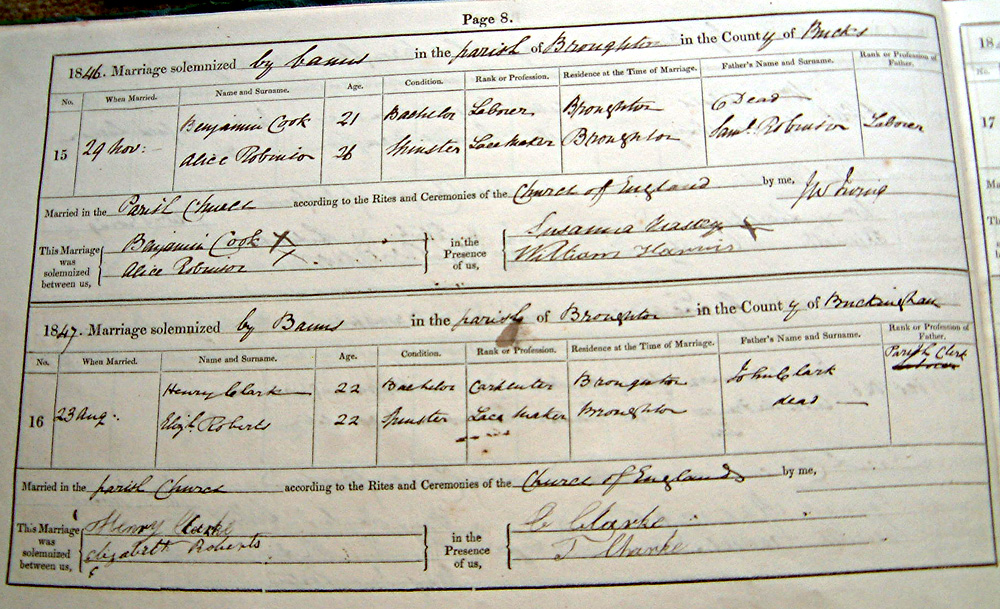 Page 8.
1846. Marriage solemnized by banns in the parish of Broughton in the County of Bucks
No. When Married. Name and Surname. Age. Condition. Rank or Profession. Residence at the Time of Marriage. Father's Name and Surname. Rank or Profession of Father.
Benjamin Cook 21 Bachelor Laborer Broughton Dead
15 29 Nov: Alice Robinson 26 Spinster Lace Maker Broughton Saml. Robinson Laborer
Married in the Parish Church according to the Rites and Ceremonies of the Church of England by me, Irving
This Marriage was solemnized between us, Benjamin Cook X
Alice Robinson
in the Presence of us, Susanna X
William
1847. Marriage solemnized by Banns in the parish of Broughton in the County of Buckingham
No. When Married. Name and Surname. Age. Condition. Rank or Profession. Residence at the Time of Marriage. Father's Name and Surname. Rank or Profession of Father.
Henry Clark 22 Bachelor Carpenter Broughton John Clark Parish Clerk
16 23 Aug: Elizh. Roberts 22 Spinster Lace Maker Broughton dead
Married in the parish Church according to the Rites and Ceremonies of the Church of England by me,
This Marriage was solemnized between us, Henry Clarke
Elizabeth Roberts
in the Presence of us, C Clarke
J Clarke
18
No.
17
Ma
This